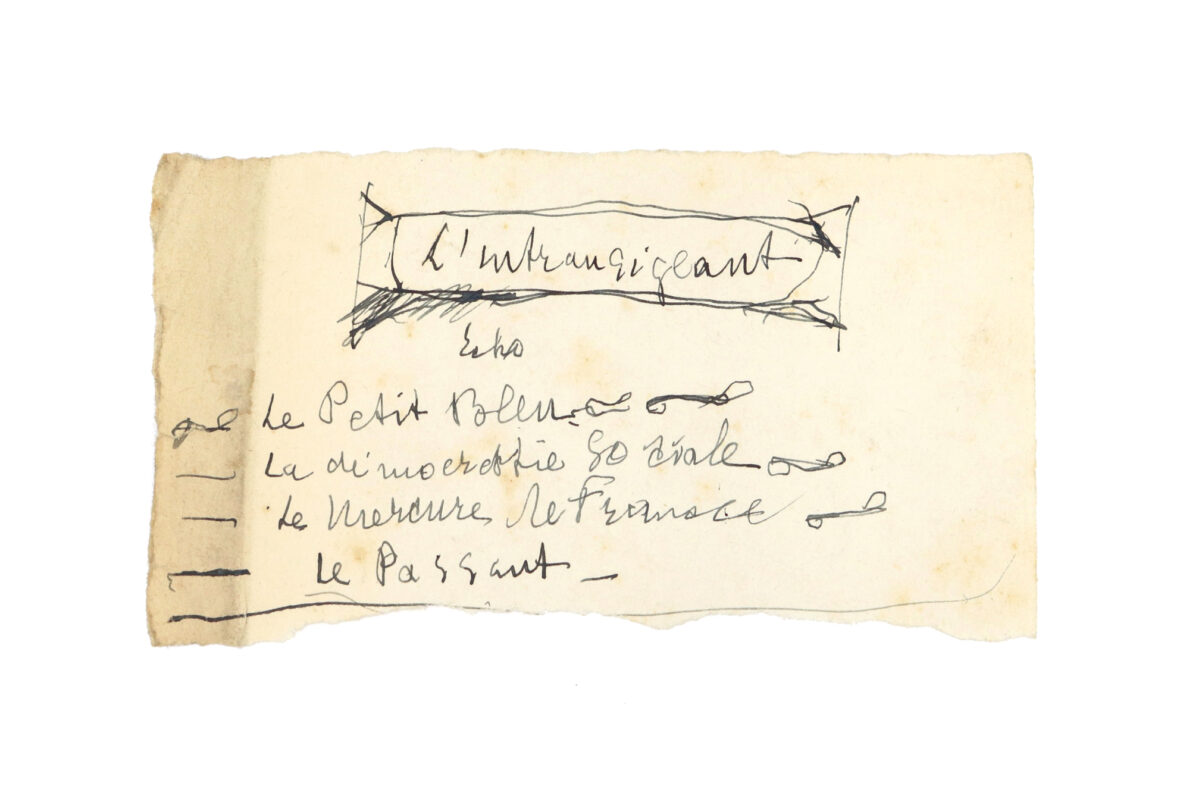 L'intransigeant
Echo
Le Petit Bleu
La démocrattie Sociale
Le Mercure de France
Le Passant